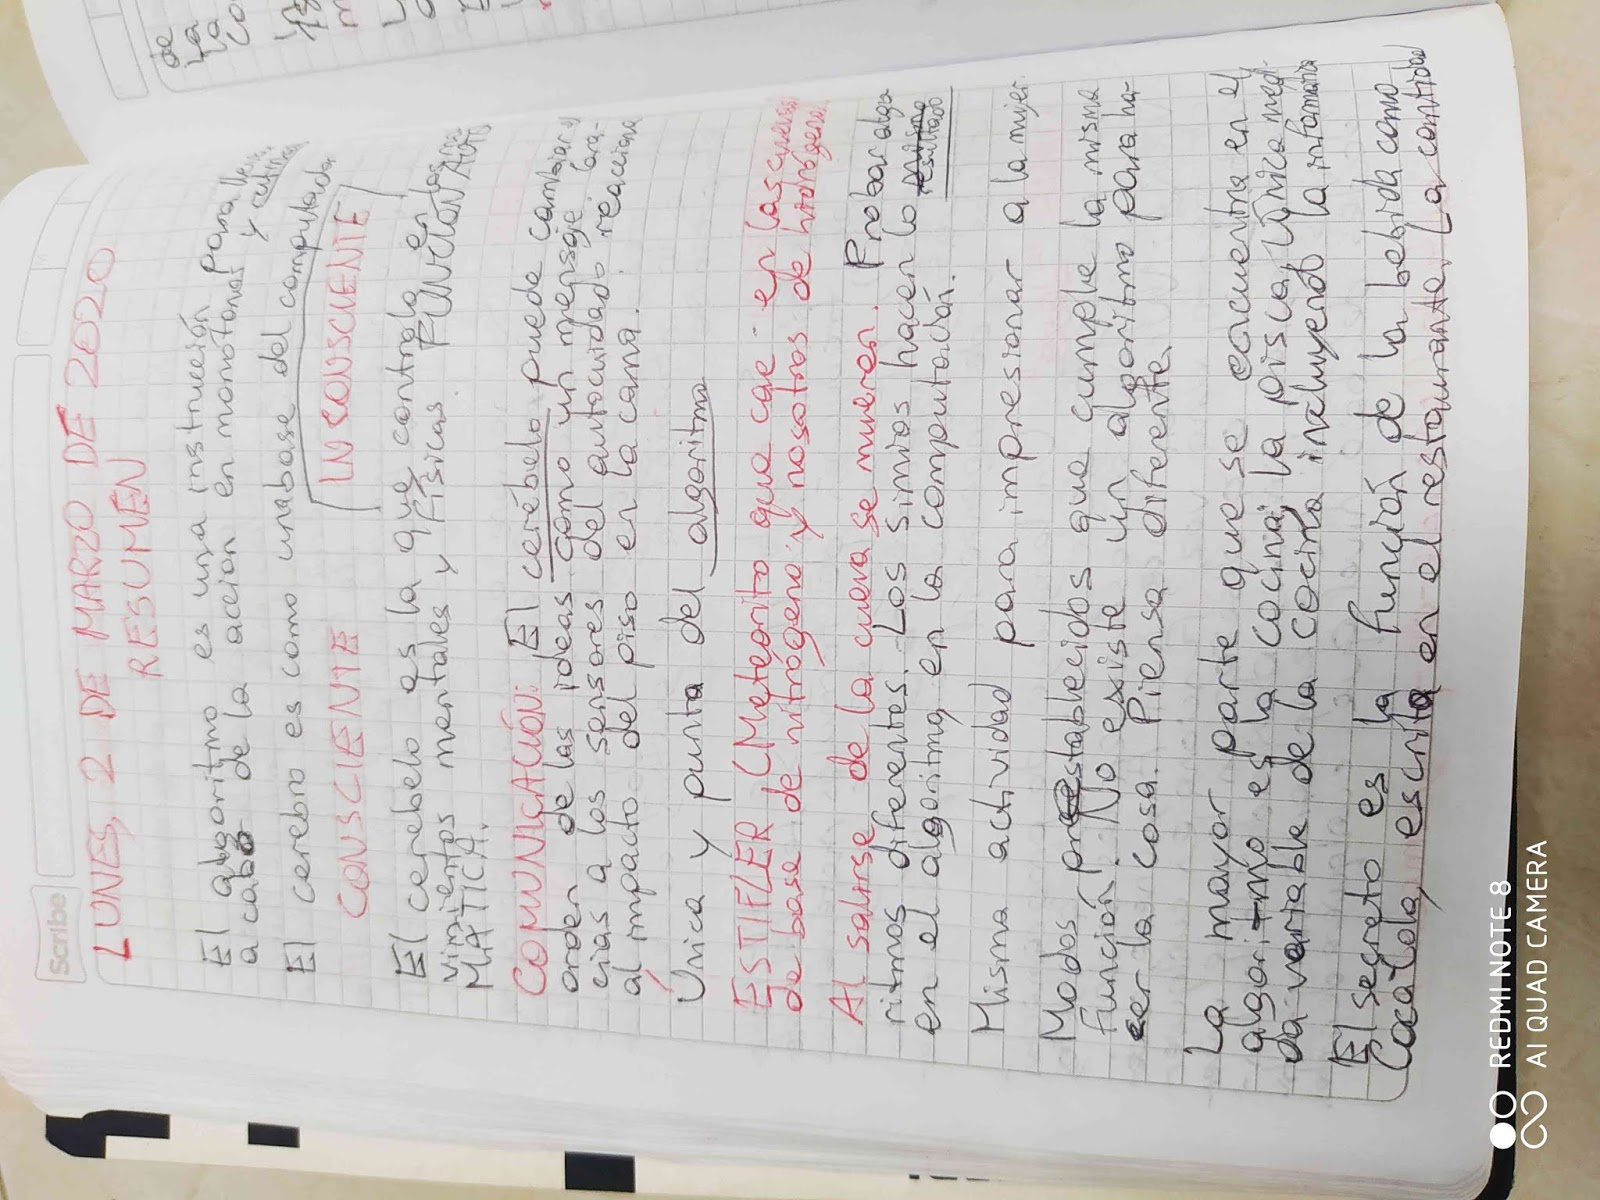 Scribe
LUNES, 2 DE MARZO DE 2020
RESUMEN
El algoritmo es una instrucción para llevar
a cabo de la acción en monótonas y rutina
El cerebro es como una base del computador
CONSCIENTE INCONSCIENTE
El cerebelo es la que controla en los mo-
vimientos mentales y físicas FUNCIÓN AUTO
MÁTICA.
COMUNICACIÓN: El cerébelo puede cambiar el
orden de las ideas como un mensaje gra-
cias a los sensores del autocuidado reacciona
al impacto del piso en la cama.
Única y punta del algoritmo
ESTIFLER (Meteorito que cae en las cuevas
de base de nitrógeno y nosotros de hidrógeno
Al salirse de la cueva se mueren. Probar algo
ritmos diferentes. Los simios hacen lo mismo
resultado
en el algoritmo, en la computación.
Misma actividad para impresionar a la mujer.
Modos preestablecidos que cumple la misma
función. No existe un algoritmo para ha-
cer la cosa. Piensa diferente.
La mayor parte que se encuentra en el
algoritmo es la cocina, la poisca. Única medi-
da variable de la cocina incluyendo la informática
El secreto es la función de la bebida como
CocaCola, escrita en el restaurante. La cantidad
de
La
co
REDMI NOTE 8
AI QUAD CAMERA